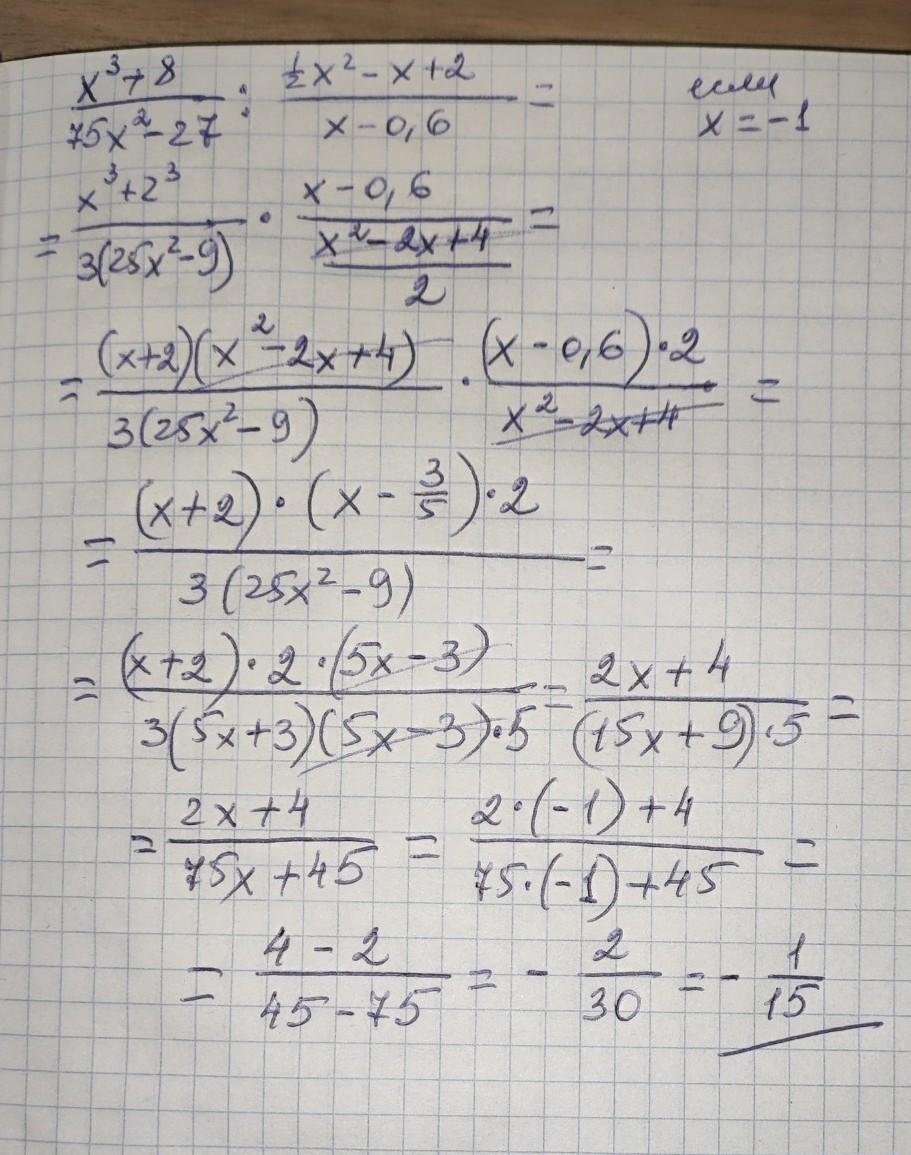 (x³+8)/(75x²-27) : (½x²-x+2)/(x-0,6) = если x=-1
= (x³+2³)/(3(25x²-9)) · (x-0,6)/((x²-2x+4)/2) =
= ((x+2)(x²-2x+4))/(3(25x²-9)) · ((x-0,6)·2)/(x²-2x+4) =
= ((x+2)·(x-3/5)·2)/(3(25x²-9)) =
= ((x+2)·2·(5x-3))/(3(5x+3)(5x-3)·5) = (2x+4)/((15x+9)·5) =
= (2x+4)/(75x+45) = (2·(-1)+4)/(75·(-1)+45) =
= (4-2)/(45-75) = -2/30 = -1/15